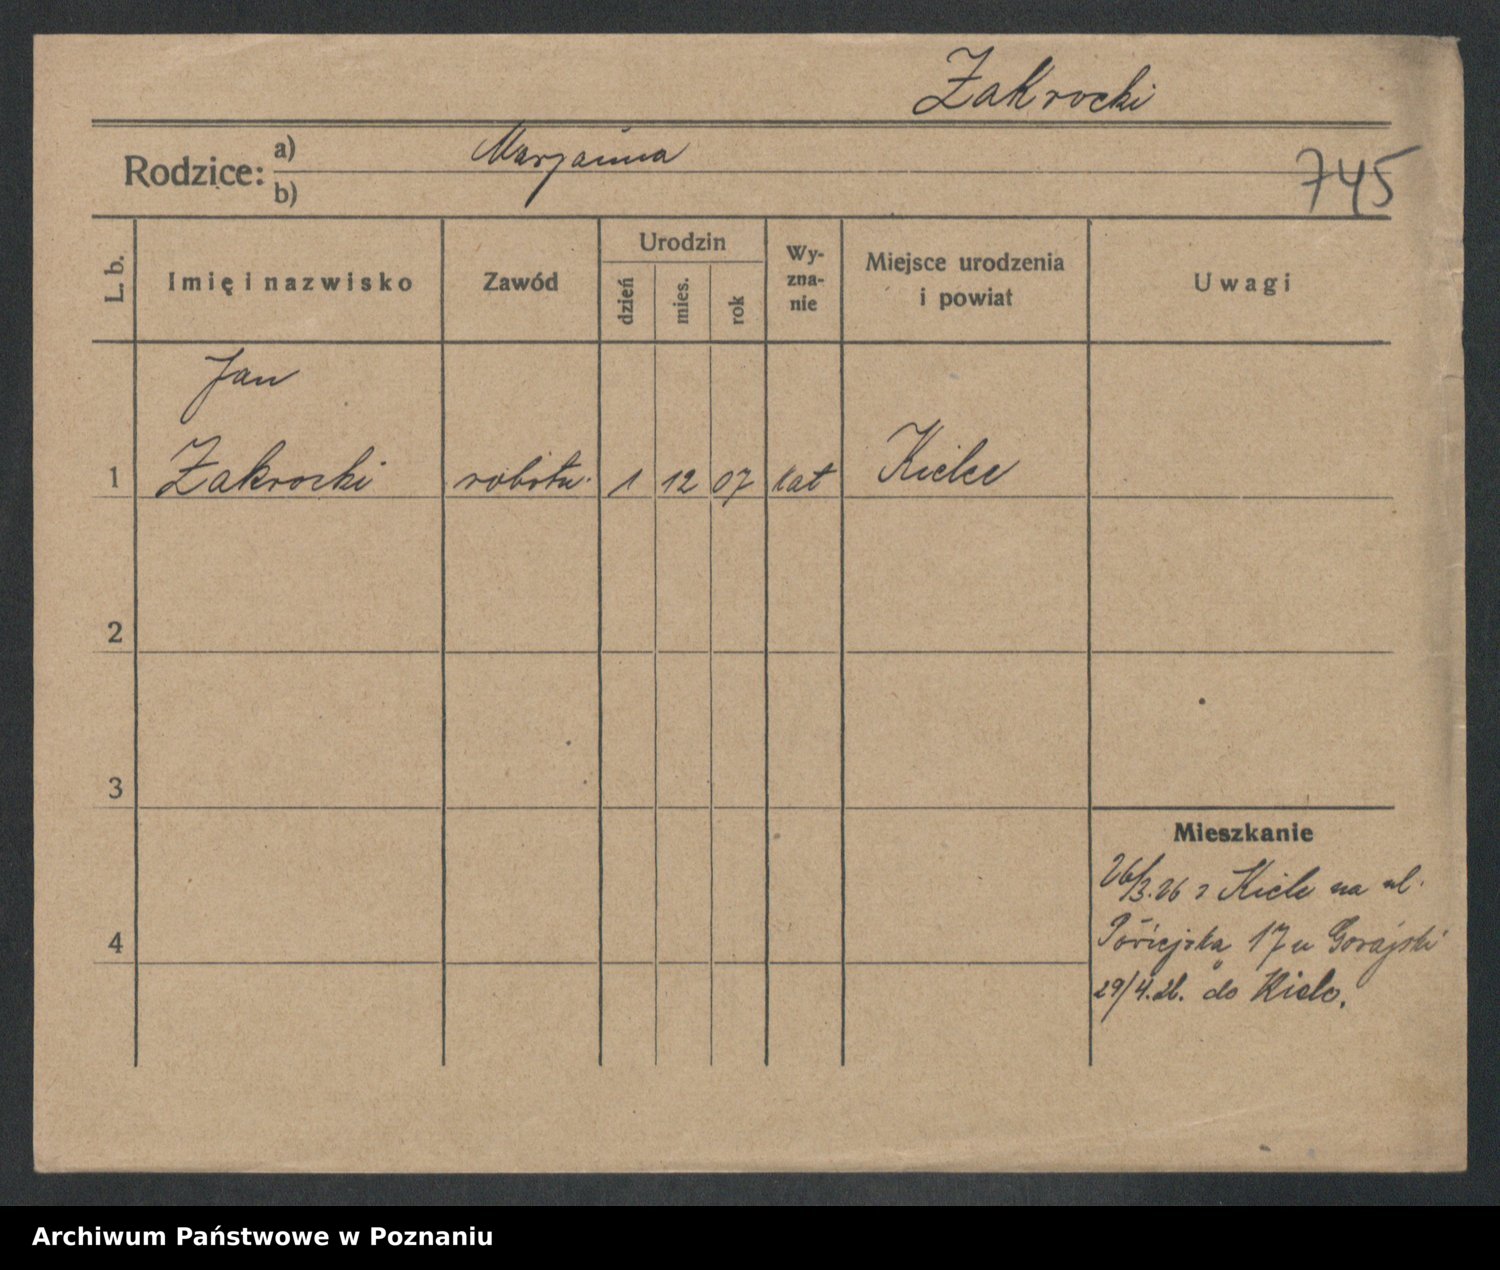 Zakrocki
Rodzice: a) Maryanna
b)
745
L. b.
Imię i nazwisko
Zawód
Urodzin
dzień
mies.
rok
Wy-
zna-
nie
Miejsce urodzenia
i powiat
Uwagi
Jan
1 Zakrocki robotn. 1 12 07 kat Kielce
2
3
4
Mieszkanie
26/3.26 z Kielc na ul.
17 u Gorajski
29/4.26. do Kielc.
Archiwum Państwowe w Poznaniu